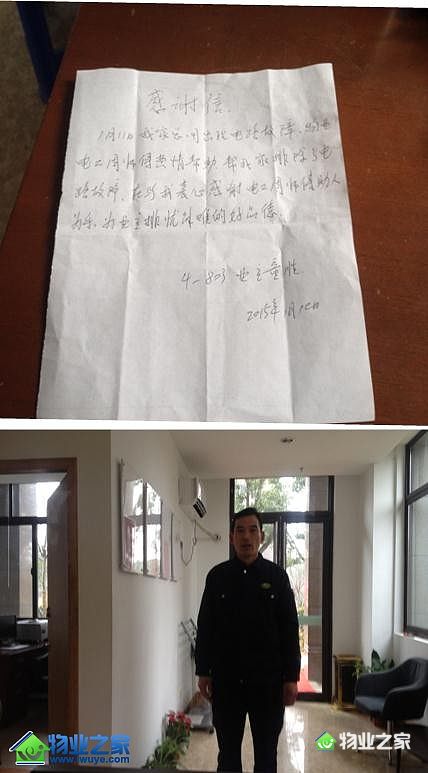 感谢信
1月11日我家空开出现电路故障,物业
电工周师傅热情帮助帮我家排除了电
路故障,在此我衷心感谢电工周师傅助人
为乐,为业主排忧解难的好品德。
4-803 业主童胜
2015年1月12日
物业之家
www.iwuye.com
物业之家